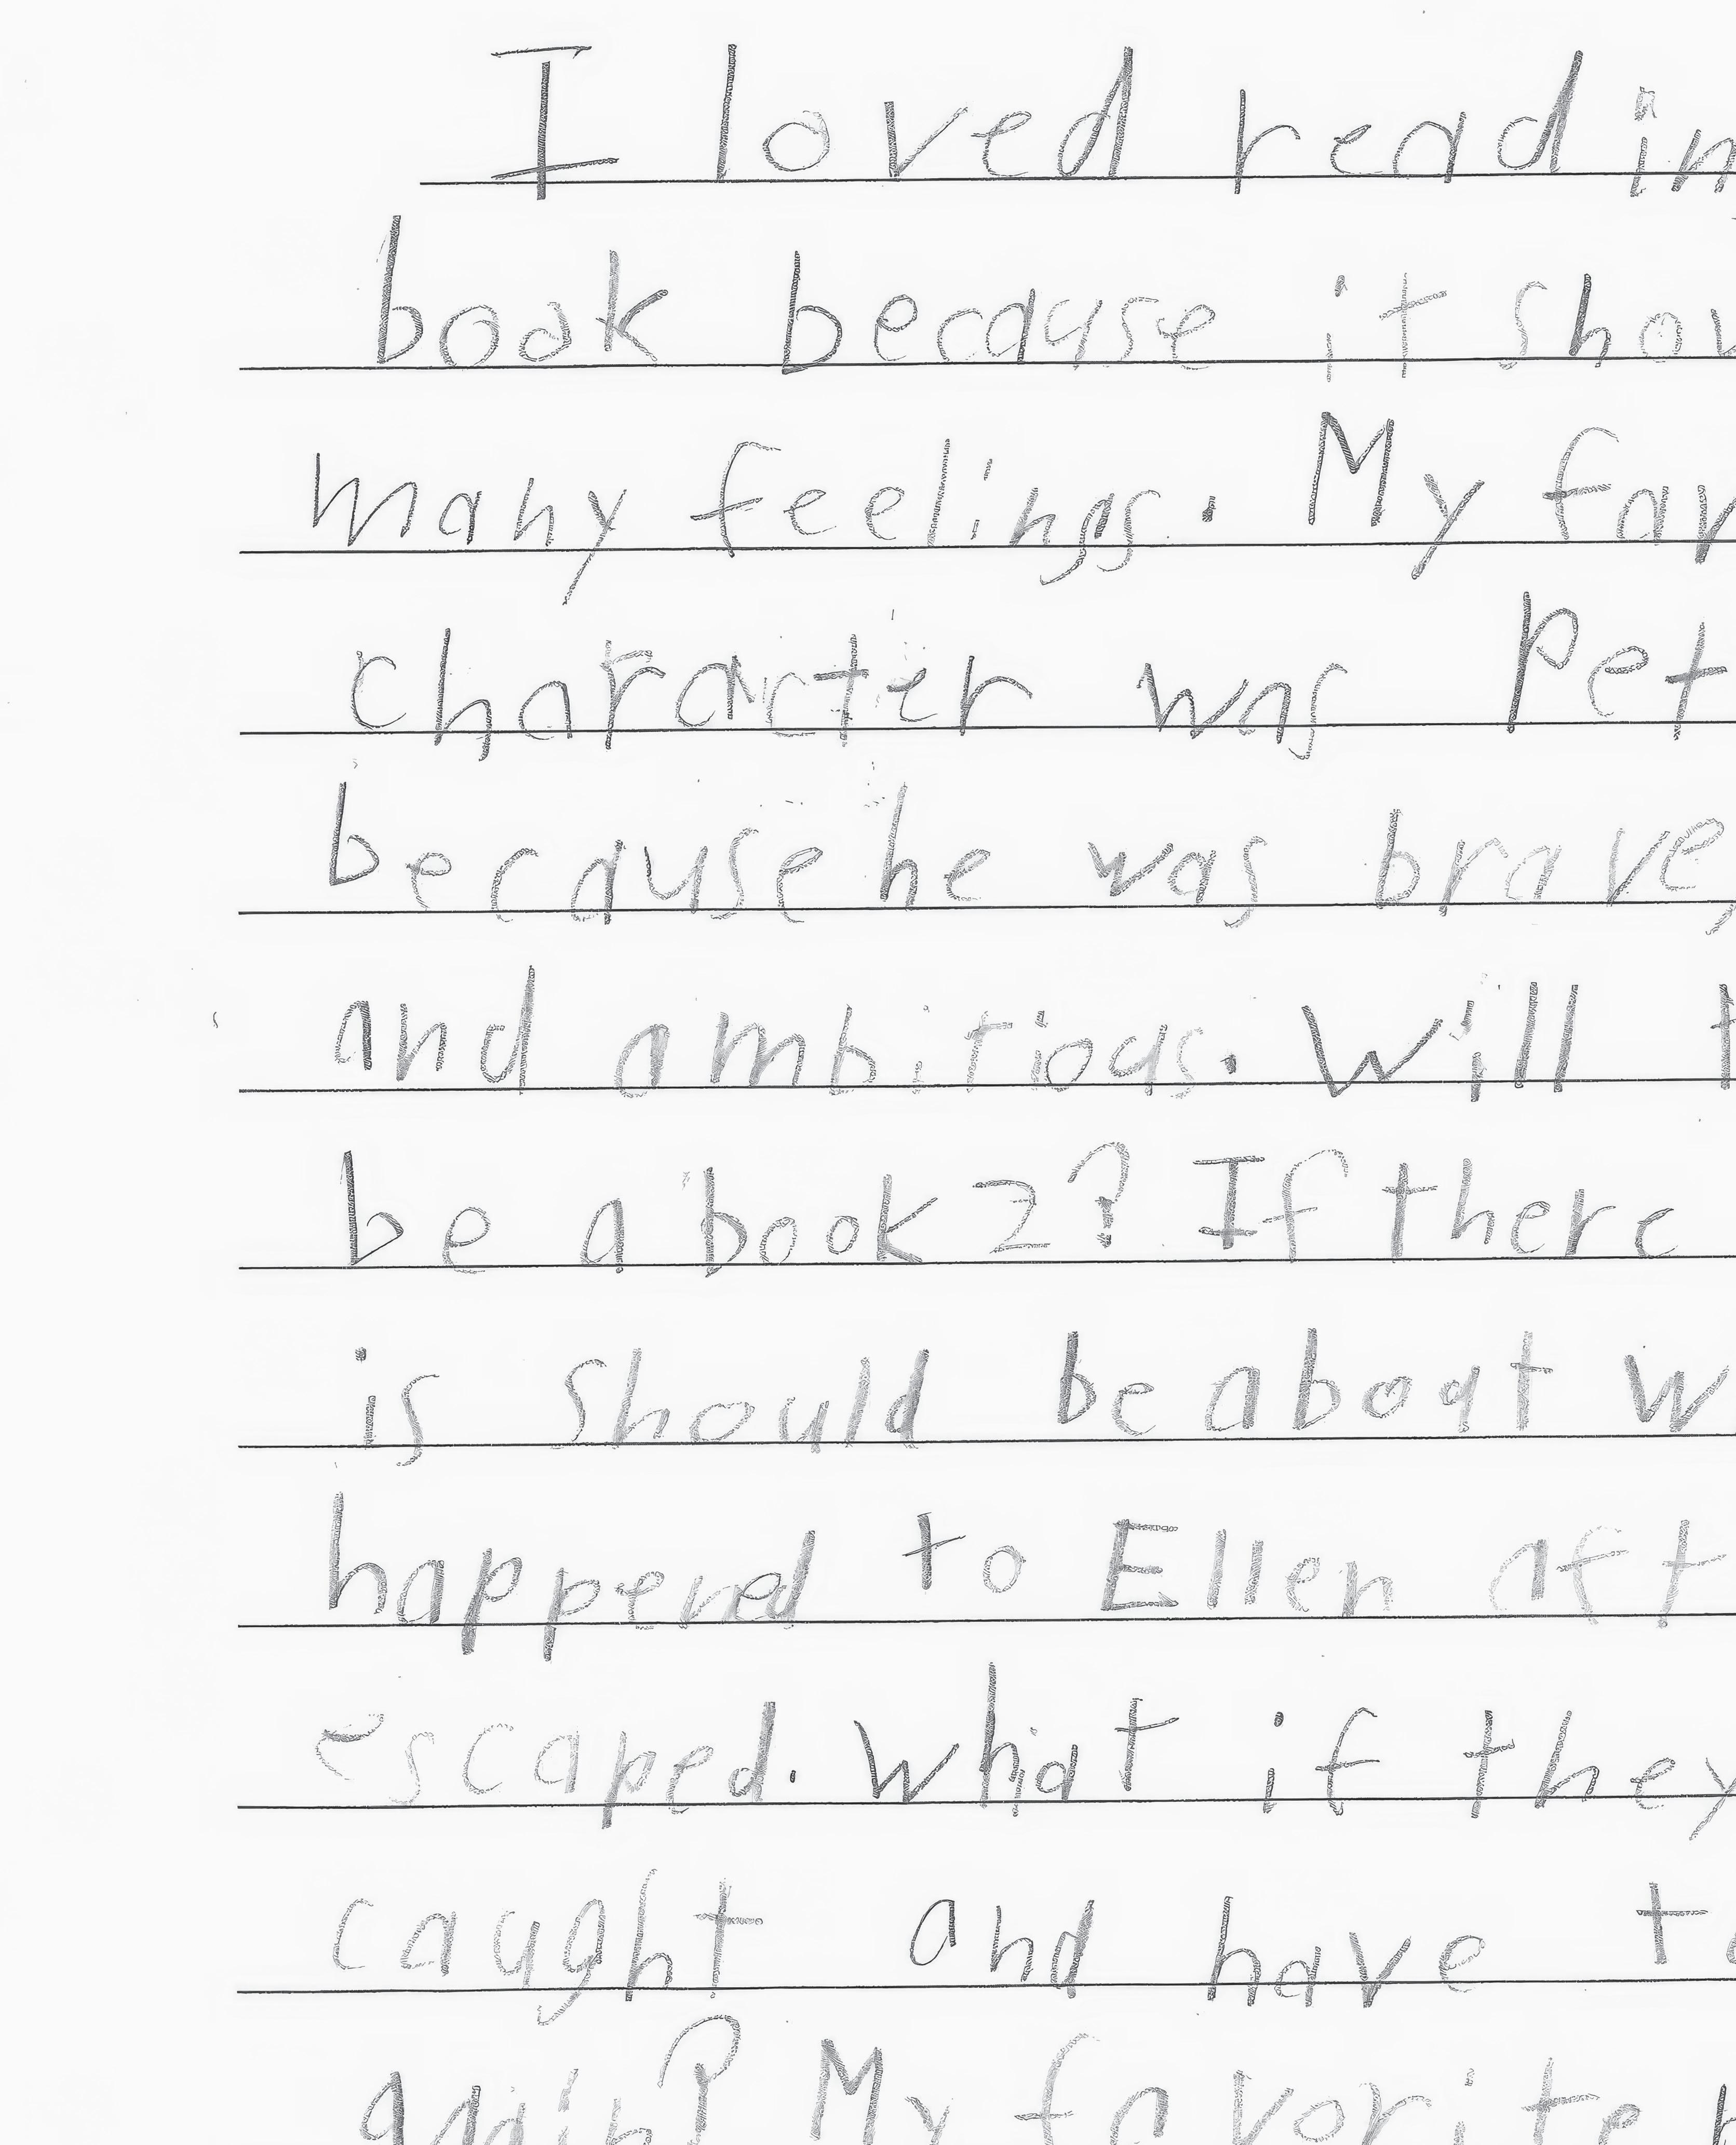 I loved readin
book because it show
many feelings. My fav
character was Pet
because he was brave,
and ambitious. Will t
be a book 2? If there
is should be about w
happened to Ellen aft
escaped. What if they
caught and have to
again? My favorite